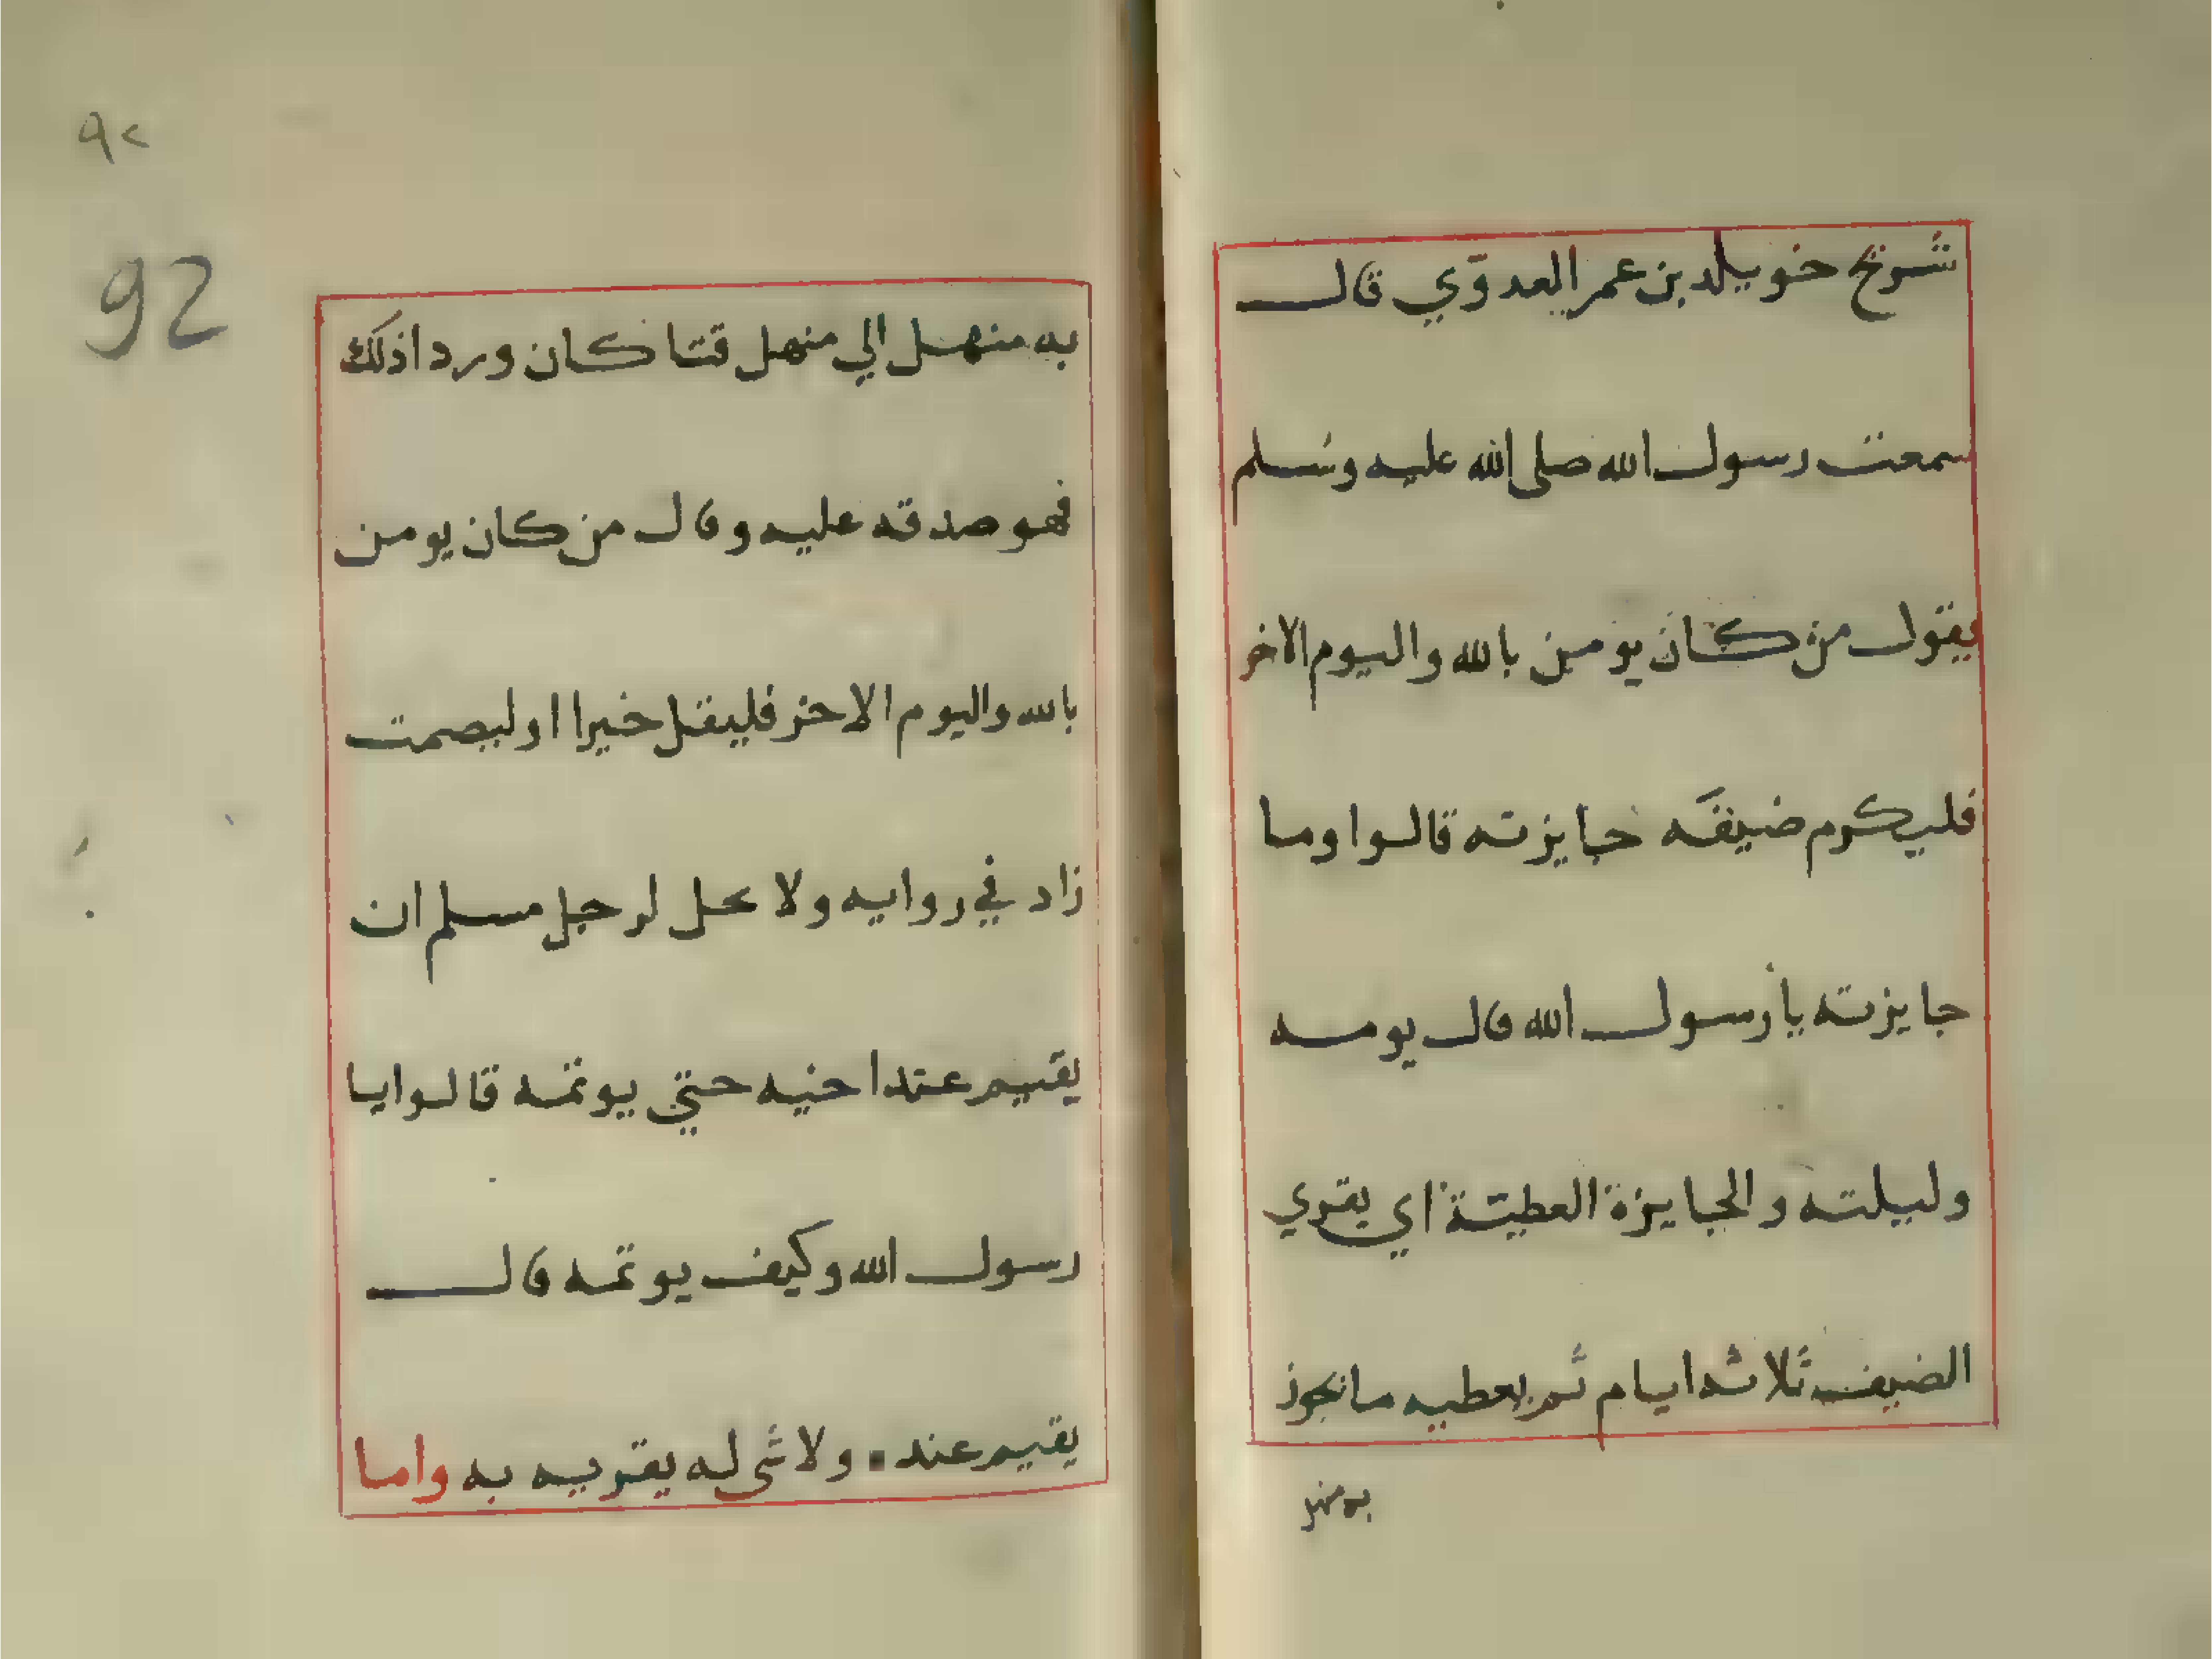 شريح خويلد بن عمر العدوي قال
سمعت رسول الله صلى الله عليه وسلم
يقول من كان يومن بالله واليوم الاخر
فليكرم ضيفه جايزته قالوا وما
جايزته يا رسول الله قال يومه
وليلته والجايزة العطيّة اي يقري
الضيف ثلاثه ايام ثم يعطيه ما نجوز
به منهل
٩٢
92
به منهل الي منهل فتا كان ورد اذلك
فهو صدقه عليه وقال من كان يومن
بالله واليوم الاخر فليقل خيرا او ليصمت
زاد في روايه ولا يحل لرجل مسلم ان
يقيم عند اخيه حتي يوثمه قالوا يا
رسول الله وكيف يوثمه قال
يقيم عنده ولا شى له يقريه به واما